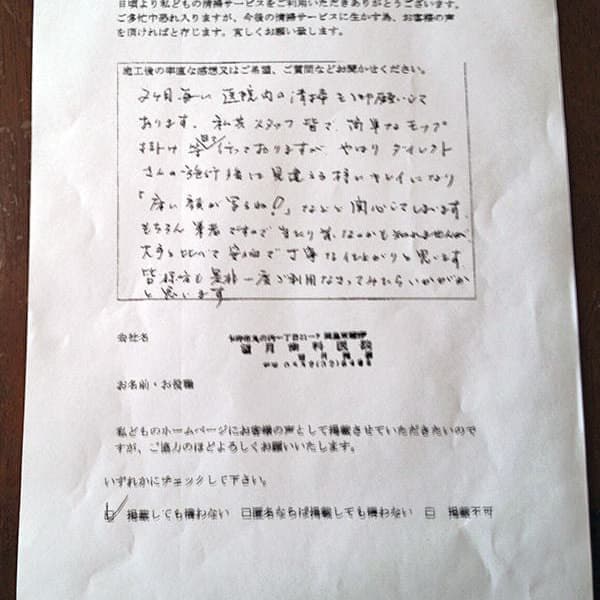 日頃より私どもの清掃サービスをご利用いただきありがとうございます。
ご多忙中恐れ入りますが、今後の清掃サービスに生かす為、お客様の声
を頂ければと存じます。宜しくお願い致します。
施工後の率直な感想又はご希望、ご質問などお聞かせください。
2ヶ月毎に 医院内の清掃をお願いして
おります。私共スタッフ皆で、簡単なモップ
掛け等行っておりますが、やはりダイレクト
さんの施行後は見違える様にキレイになり
「床に顔が写るね!」などと関心してしまいます。
もちろん業者ですので当たり前なのかも知れませんが
大手と比べて安価で丁寧な仕上がりと思います
皆様方も是非一度ご利用なさってみたらいかがか
と思います
会社名
望月歯科医院
お名前・お役職
私どものホームページにお客様の声として掲載させていただきたいので
すが、ご協力のほどよろしくお願いいたします。
いずれかにチェックして下さい。
☑ 掲載しても構わない □匿名ならば掲載しても構わない □ 掲載不可